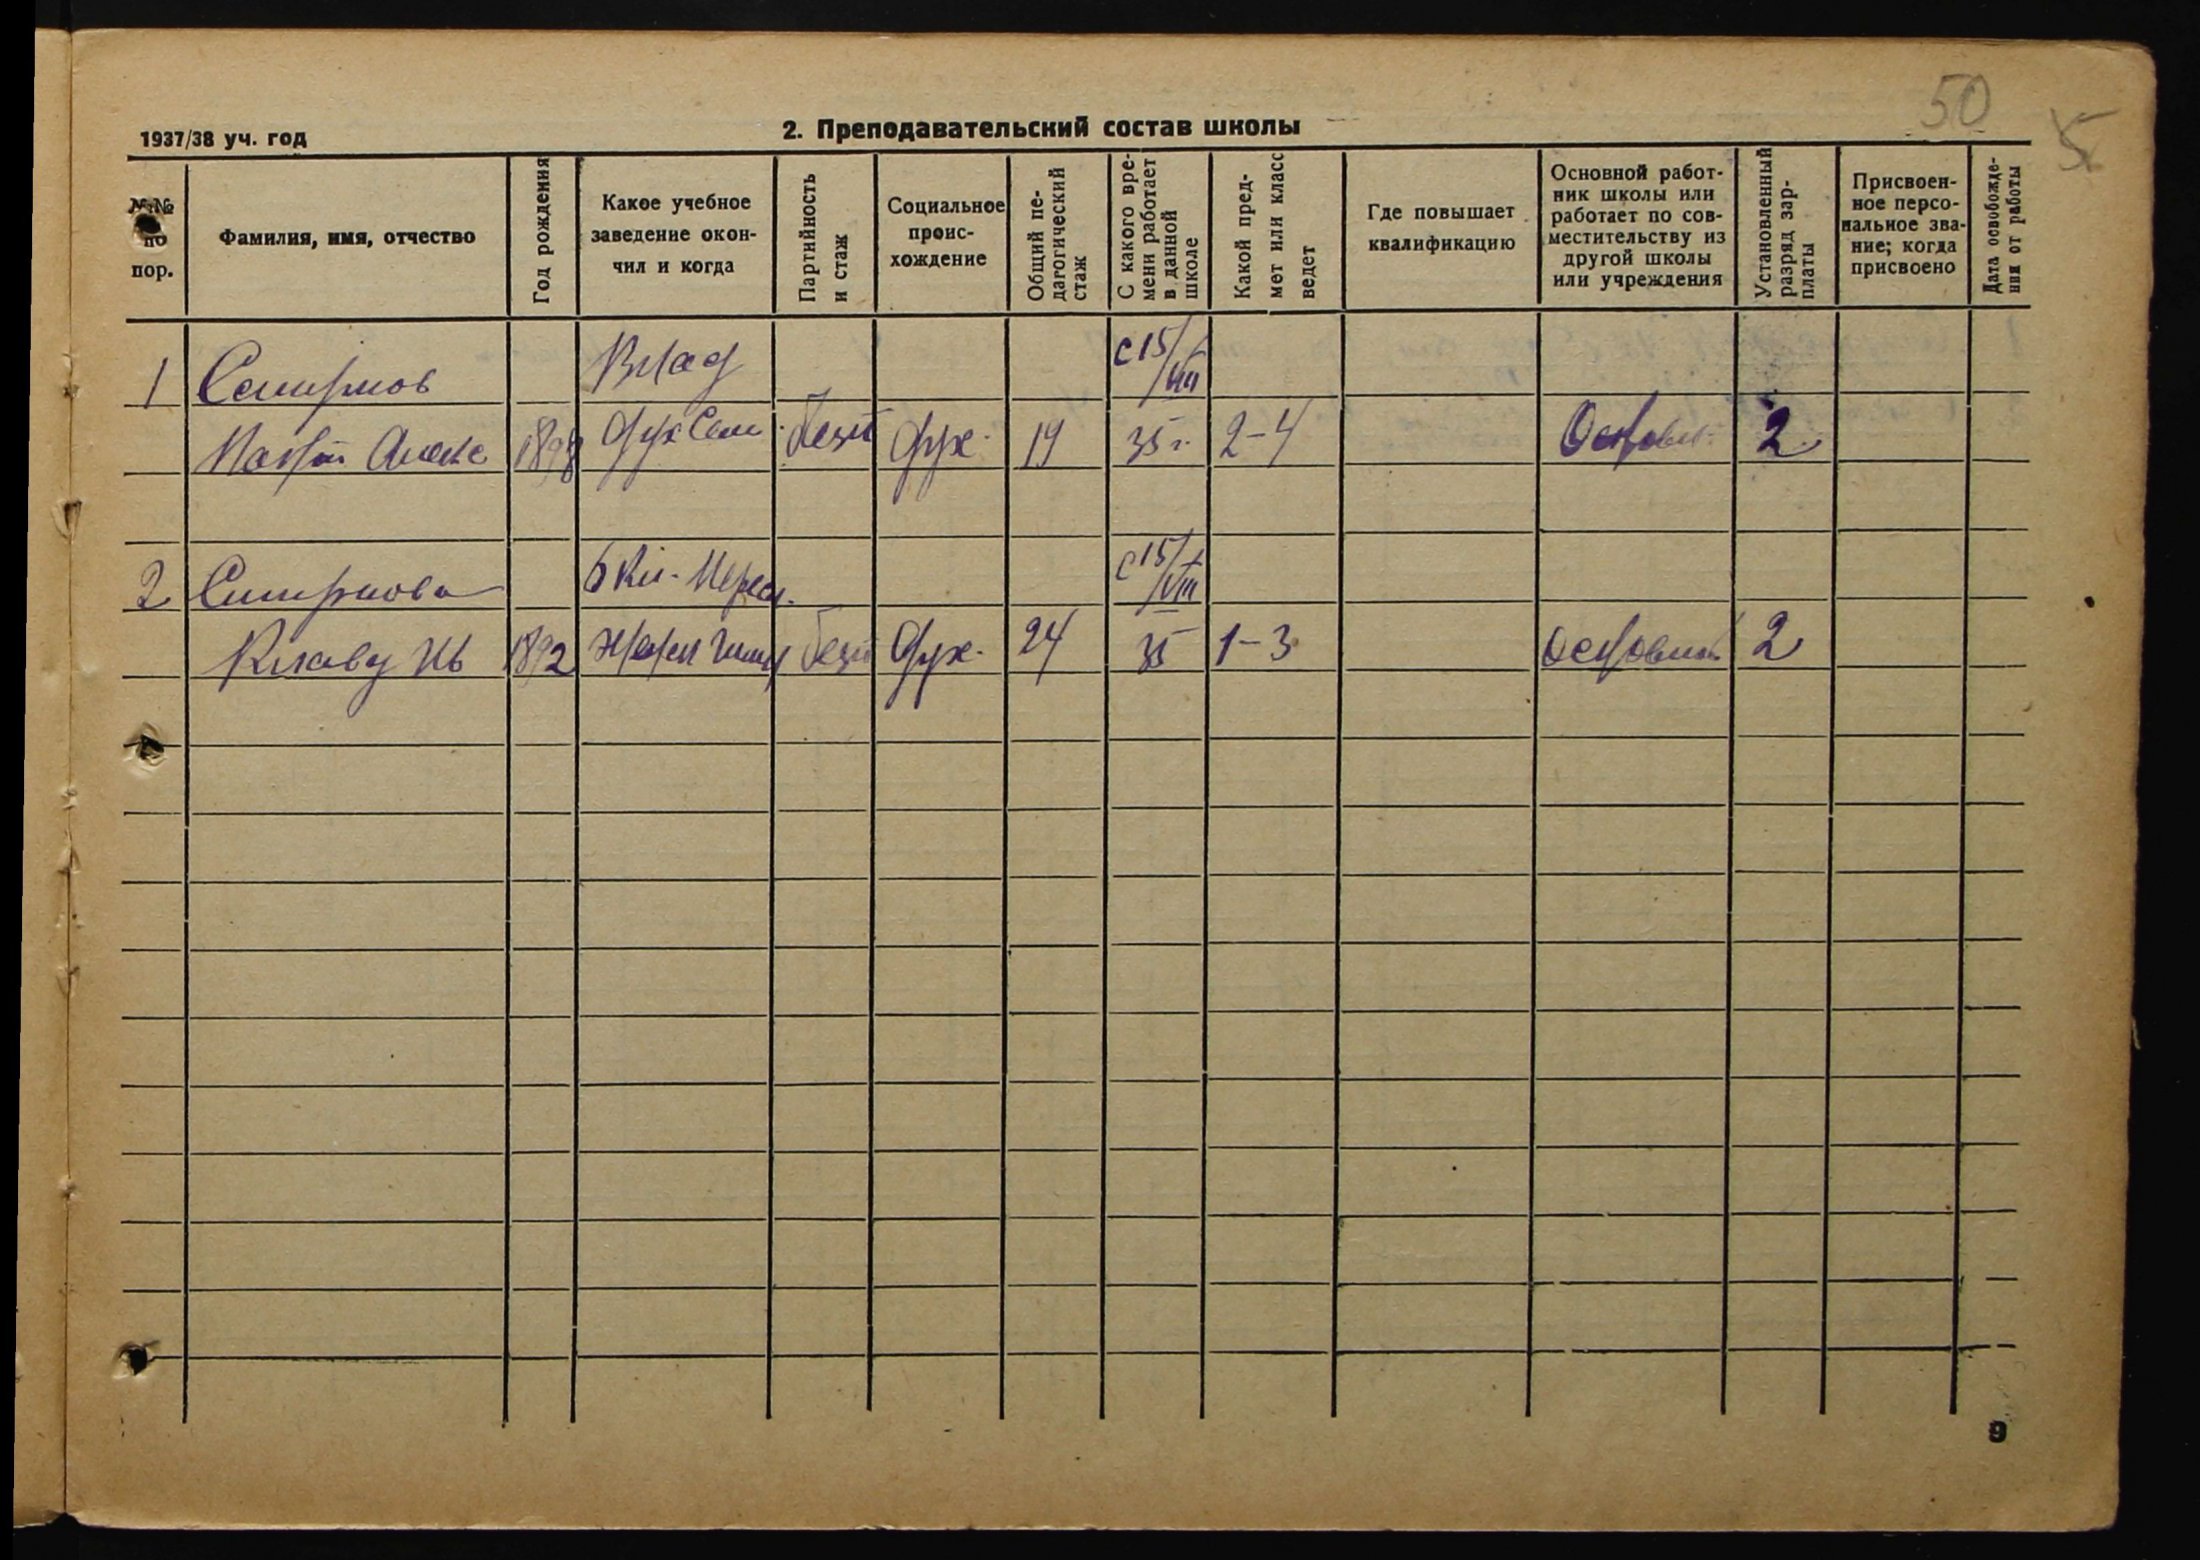 50
5
1937/38 уч. год
2. Преподавательский состав школы
№№ по пор.
Фамилия, имя, отчество
Год рождения
Какое учебное заведение окон-
чил и когда
Партийность и стаж
Социальное проис-
хождение
Общий пе-
дагогический стаж
С какого вре-
мени работает в данной школе
Какой пред-
мет или класс ведет
Где повышает квалификацию
Основной работ-
ник школы или работает по сов-
местительству из другой школы или учреждения
Установленный разряд зар-
платы
Присвоен-
ное персо-
нальное зва-
ние; когда присвоено
Дата освобожде-
ния от работы
1 Смирнов Влад с 15/VIII
Алекс 1898 дух Сем. безп дух. 19 35 г. 2-4 Основн. 2
2 Смирнова 6 кл. с 15/VIII
Клавд Ив 1892 жен гимн безп дух. 24 35 1-3 основной 2
9